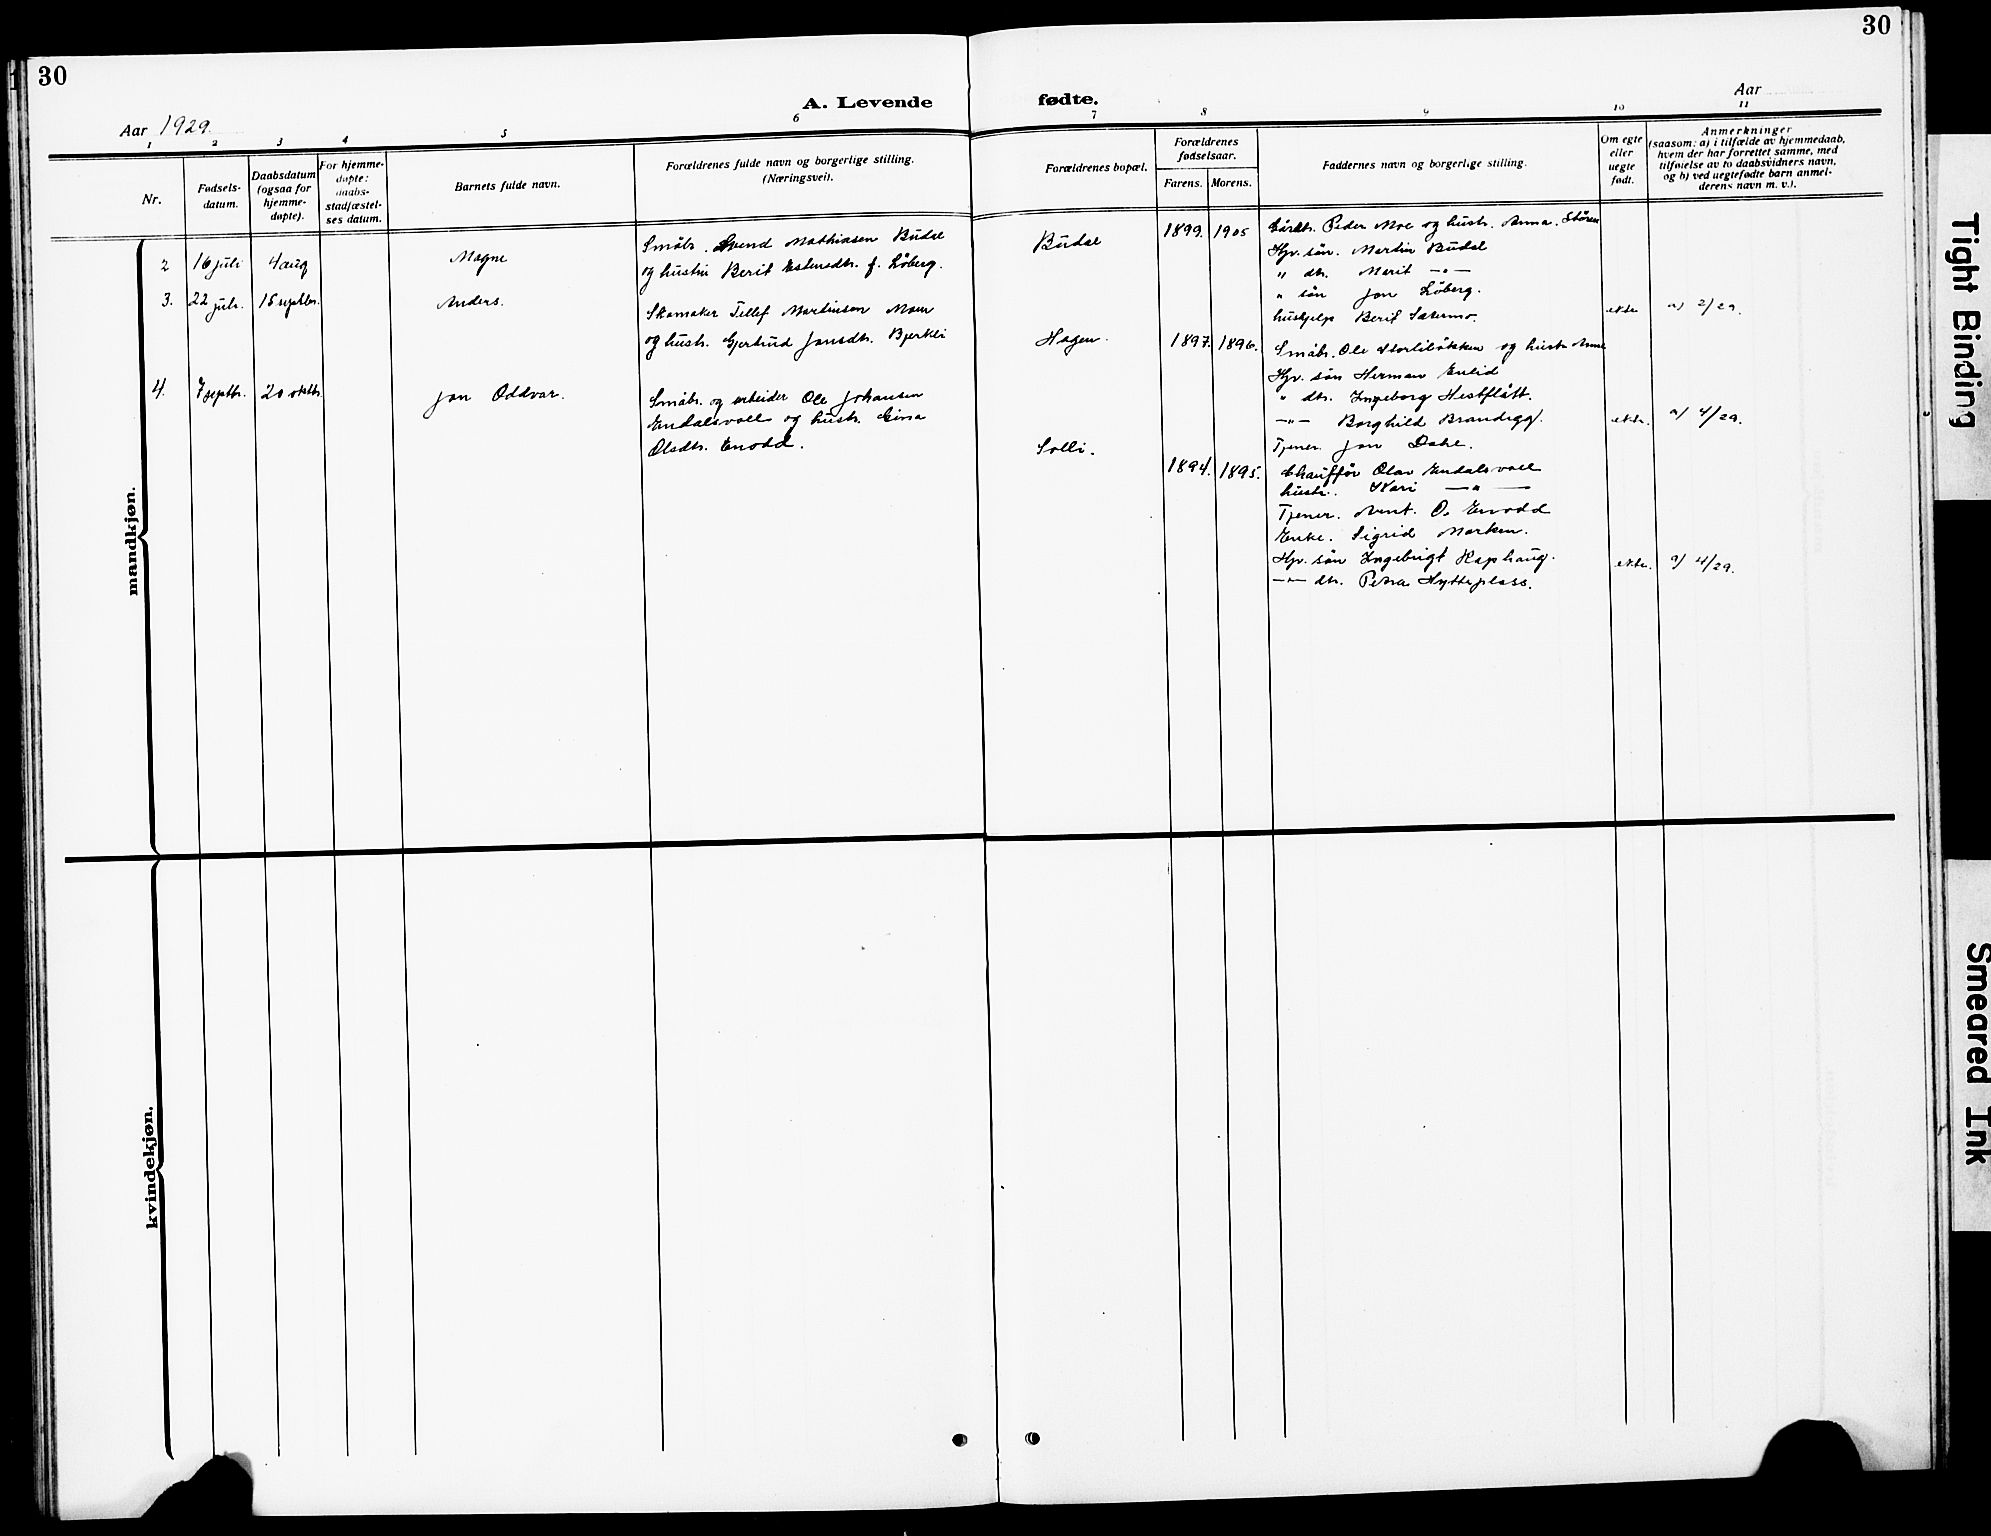 30
30
A. Levende fødte.
Aar 1929.
Aar
1 2 3 4 5 6 7 8 9 10 11
Nr.
Fødsels-
datum.
Daabsdatum
(ogsaa for
hjemme-
døpte).
For hjemme-
døpte:
daabs-
stadfæstel-
ses datum.
Barnets fulde navn.
Forældrenes fulde navn og borgerlige stilling.
(Næringsvei).
Forældrenes bopæl.
Forældrenes
fødselsaar.
Farens. Morens.
Faddernes navn og borgerlige stilling.
Om egte
eller
uegte
født.
Anmerkninger
(saasom: a) i tilfælde av hjemmedaab,
hvem der har forrettet samme, med
tilføielse av to daabsvidners navn,
og b) ved uegtefødte barn anmel-
derens navn m. v.).
mandkjøn.
2 16 juli 4 aug Magne
Småbr. Svend Mathiasen Budal
og hustru Berit Estensdtr. f. Løberg.
Budal
1899. 1905
Peder Moe og hustr. Anna. Støren
Gv. søn. Martin Budal
" dtr. Marit —"—
" søn Jon Løberg.
hushjelp Berit Sætermo.
ekte a) 2/29.
3. 22 juli. 15 septbr. Anders.
Skomaker Tellef Martinsen Moen
og hustr. Gjertrud Jonsdtr. Bjerkli
Hagen.
1897. 1896.
Småbr. Ole Storlibakken og hustr. Anne
Gv. søn Herman Enlid
" dtr. Ingeborg Hestflått.
—"— Borghild Brandegg.
Tjener Jon Dahl.
ekte. a) 4/29.
4. 7 septbr. 20 oktbr. Jon Oddvar.
Småbr. og arbeider Ole Johansen
Endalsvoll og hustr.
Olsdtr. Enodd.
Solli.
1894. 1895.
Chauffør Olav Endalsvoll
hustr. Kari —"—
Tjener. Arnt. O. Enodd
Enke. Sigrid Morken.
Gv. søn Ingebrigt Raphaug.
—"— dtr. Petra Hytteplass.
ekte. a) 4/29.
kvindekjøn.
Tight Binding
Smeared Ink